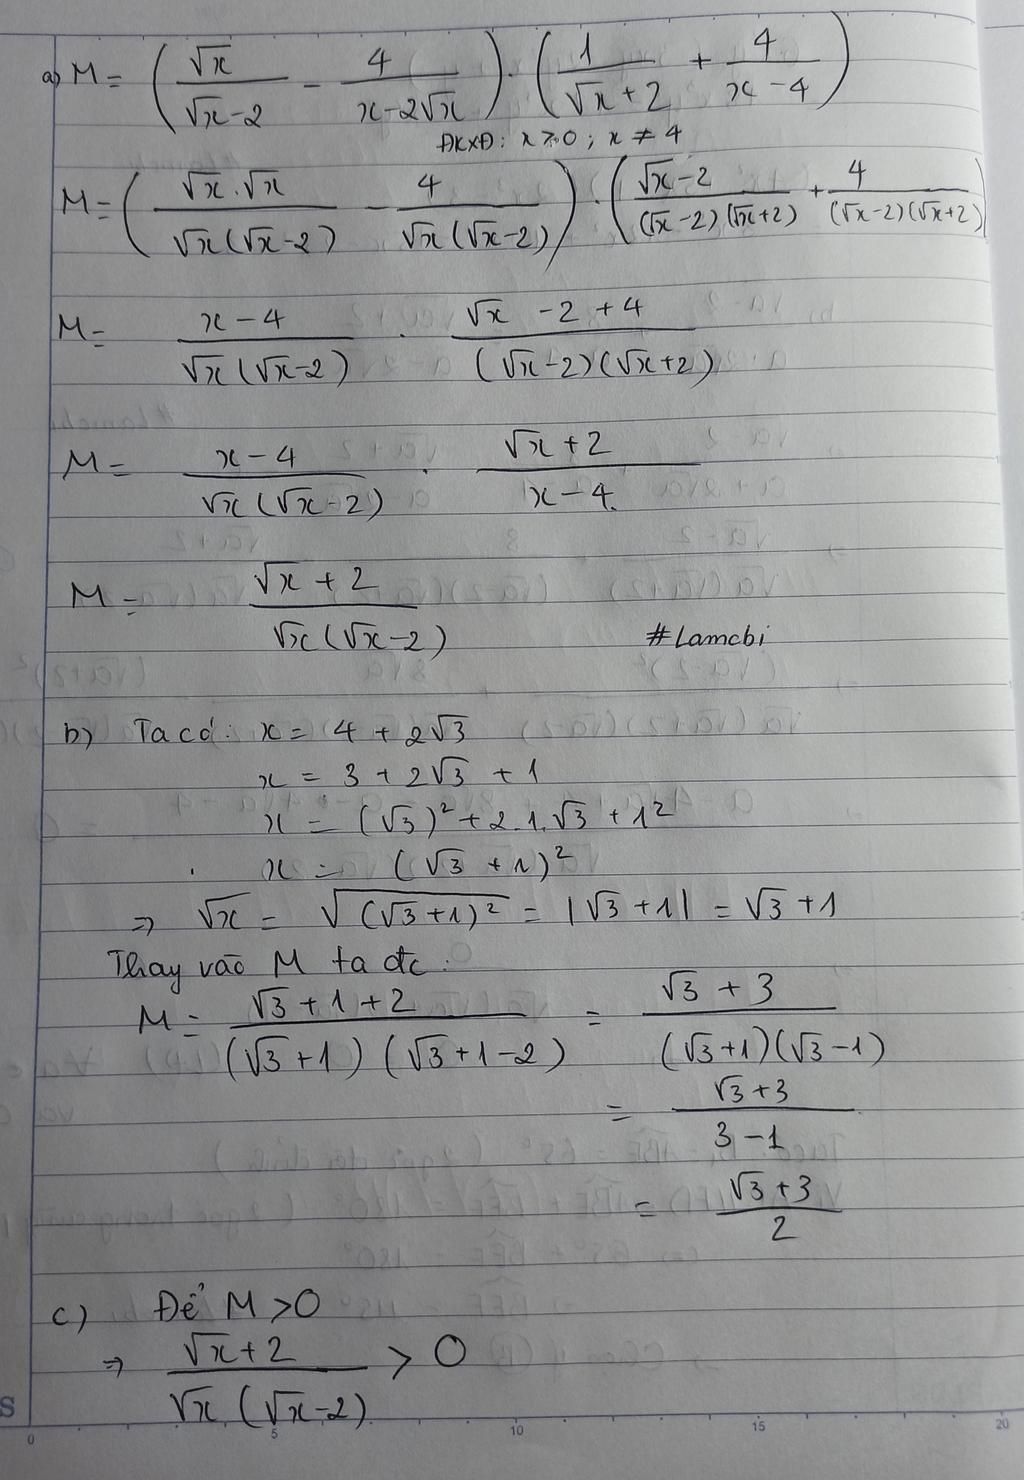 a) M = (√x / (√x - 2) - 4 / (x - 2√x)) . (1 / (√x + 2) + 4 / (x - 4))
ĐKXĐ: x ≥ 0 ; x ≠ 4
M = (√x . √x / (√x(√x - 2)) - 4 / (√x(√x - 2))) . ((√x - 2) / ((√x - 2)(√x + 2)) + 4 / ((√x - 2)(√x + 2)))
M = (x - 4) / (√x(√x - 2)) . (√x - 2 + 4) / ((√x - 2)(√x + 2))
M = (x - 4) / (√x(√x - 2)) . (√x + 2) / (x - 4)
M = (√x + 2) / (√x(√x - 2))
#Lamcbi
b) Ta có: x = 4 + 2√3
x = 3 + 2√3 + 1
x = (√3)² + 2.1.√3 + 1²
x = (√3 + 1)²
⇒ √x = √((√3 + 1)²) = |√3 + 1| = √3 + 1
Thay vào M ta đc:
M = (√3 + 1 + 2) / ((√3 + 1)(√3 + 1 - 2)) = (√3 + 3) / ((√3 + 1)(√3 - 1))
= (√3 + 3) / (3 - 1)
= (√3 + 3) / 2
c) Để M > 0
⇒ (√x + 2) / (√x.(√x - 2)) > 0
S
0 5 10 15 20